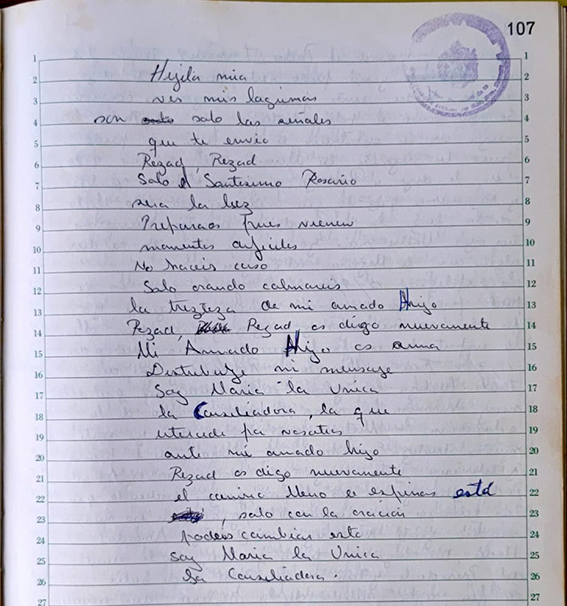 107
Hijita mia
ves mis lagrimas
son solo las señales
que te envio
Rezad, Rezad
Solo el Santisimo Rosario
sera la luz
Preparaos pues vienen
momentos dificiles
No haceis caso
Solo orando calmareis
la trizteza de mi amado Hijo
Rezad, Rezad os digo nuevamente
Mi Amado Hijo os ama
Distribulle mi mensaje
Soy Maria la Unica
la Consiliadora, la que
intersede por vosotros
ante mi amado hijo
Rezad os digo nuevamente
el camino lleno de espinas está
, solo con la oración
podeis cambiar esto
soy Maria la Unica
La Consiliadora.